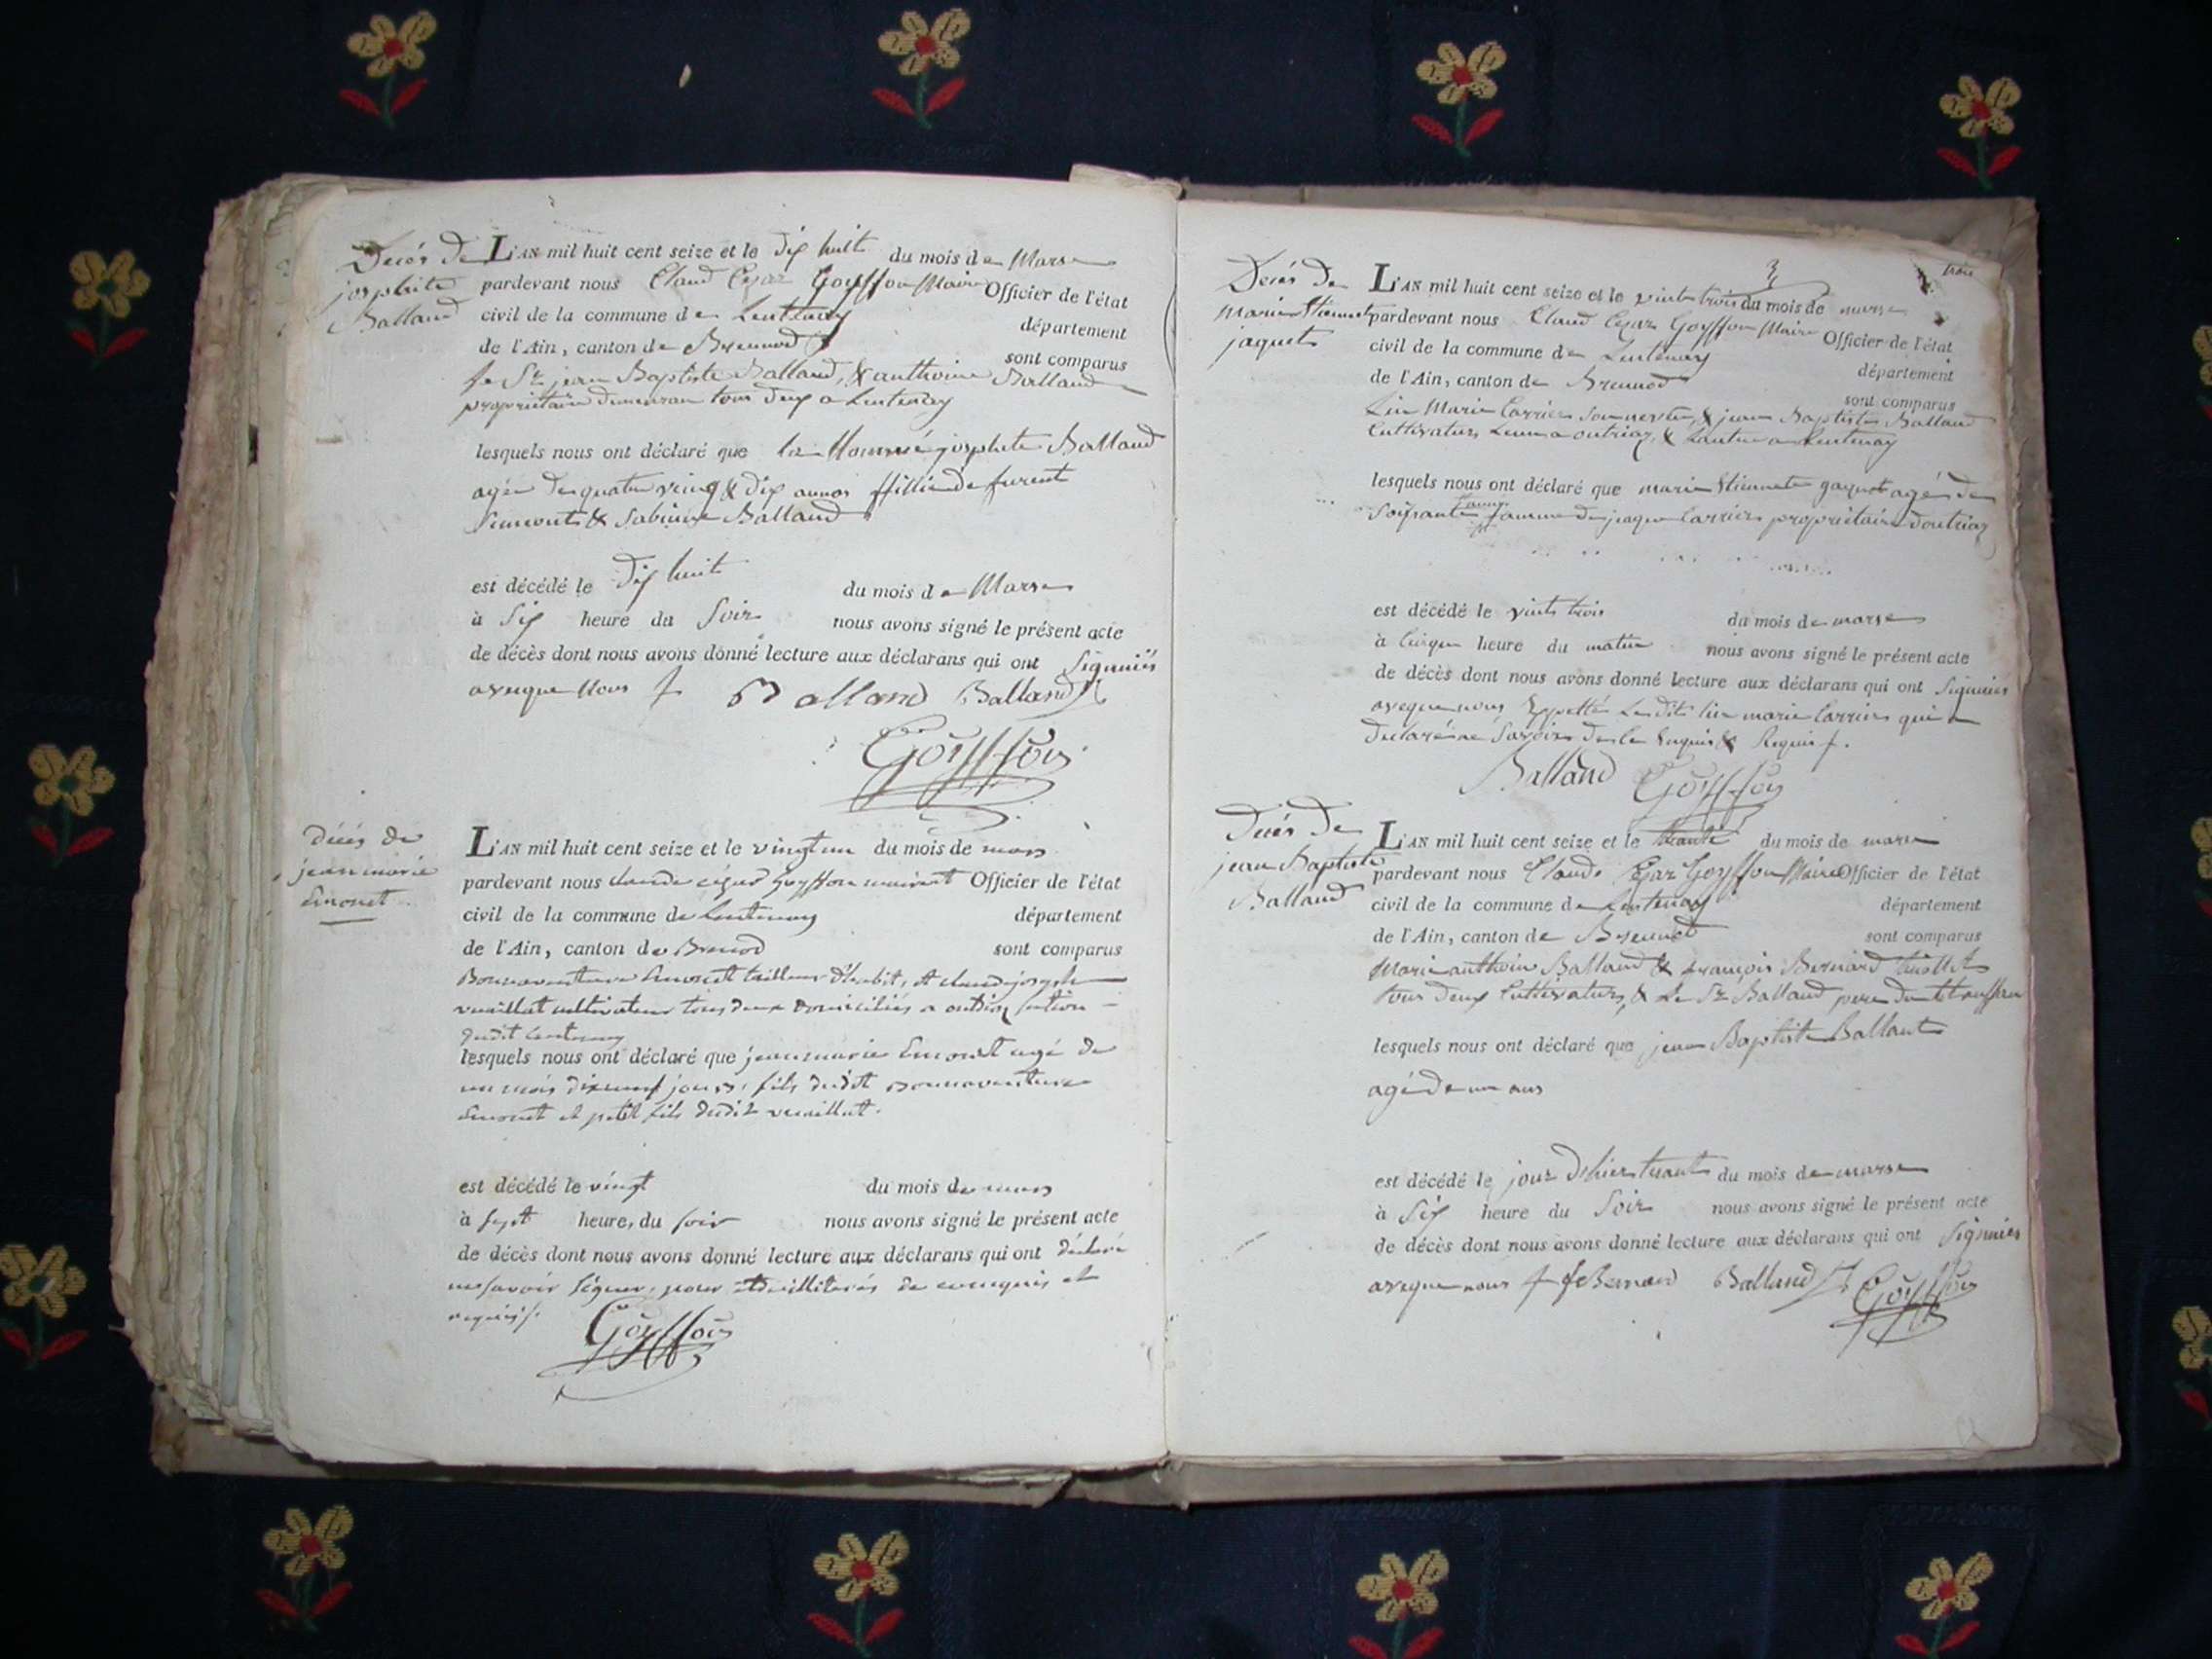 Decés De
josphite
Balland
L'AN mil huit cent seize et le dix huit du mois de Mars
pardevant nous Claud Cezar Goyffon Maire Officier de l'état
civil de la commune de Lentenay département
de l'Ain, canton de Brennod sont comparus
le Sr jean Baptiste Balland, & anthoine Balland
propriétaire demeuran tous deux a Lentenay
lesquels nous ont déclaré que la Nommé josphete Balland
agée de quatre veing & dix annos ffillie de furent
& Sabinne Balland
est décédé le dix huit du mois de Mars
à six heure du Soir nous avons signé le présent acte
de décès dont nous avons donné lecture aux déclarans qui ont signniés
aveque Nous Balland Balland
Goyffon
décés de
jean marie
Emonet
L'AN mil huit cent seize et le vingt un du mois de mars
pardevant nous claude cézar Goyffon Officier de l'état
civil de la commune de Lentenay département
de l'Ain, canton de Brenod sont comparus
Bonnaventure Emonet tailleur d'habit, et claude joseph
vuaillat cultivateur tous deux domiciliés a outriaz section
dudit Lentenay
lesquels nous ont déclaré que jean marie Emonet agé de
un mois dixneuf jours, fils dudit Bonnaventure
Emonet et petit fils dudit vuaillat.
est décédé le vingt du mois de mars
à sept heure, du soir nous avons signé le présent acte
de décès dont nous avons donné lecture aux déclarans qui ont déclaré
ne savoir signer, pour de ce enquis et
requis
Goyffon
3
trois
Decés De
marie Etiennet
jaquet
L'AN mil huit cent seize et le vints trois du mois de mars
pardevant nous Claud Cezar Goyffon Maire Officier de l'état
civil de la commune de Lentenay département
de l'Ain, canton de Brennod sont comparus
marie Carrier & jean Baptiste Balland
Cultivateurs Lun a outriaz, & Lautre a Lentenay
lesquels nous ont déclaré que marie Etiennete jaquet agée de
soixante femme de jaque Carrier propriétaire doutriaz
est décédé le vints trois du mois de mars
à Cinque heure du matin nous avons signé le présent acte
de décès dont nous avons donné lecture aux déclarans qui ont signniés
aveque nous marie Carrier qui a
declaré ne savoir de ce Enquis & Requis
Balland Goyffon
Decés De
jean Baptiste
Balland
L'AN mil huit cent seize et le trante du mois de mars
pardevant nous Claude Cezar Goyffon Maire Officier de l'état
civil de la commune de Lentenay département
de l'Ain, canton de Brennod sont comparus
Marie anthoine Balland & françois Bernard
tous deux Cultivateurs, & Le Sr Balland pere du
lesquels nous ont déclaré que jean Baptiste Balland
agé de un ans
est décédé le jour Dhier trante du mois de mars
à six heure du Soir nous avons signé le présent acte
de décès dont nous avons donné lecture aux déclarans qui ont signniés
aveque nous f Bernard Balland Goyffon